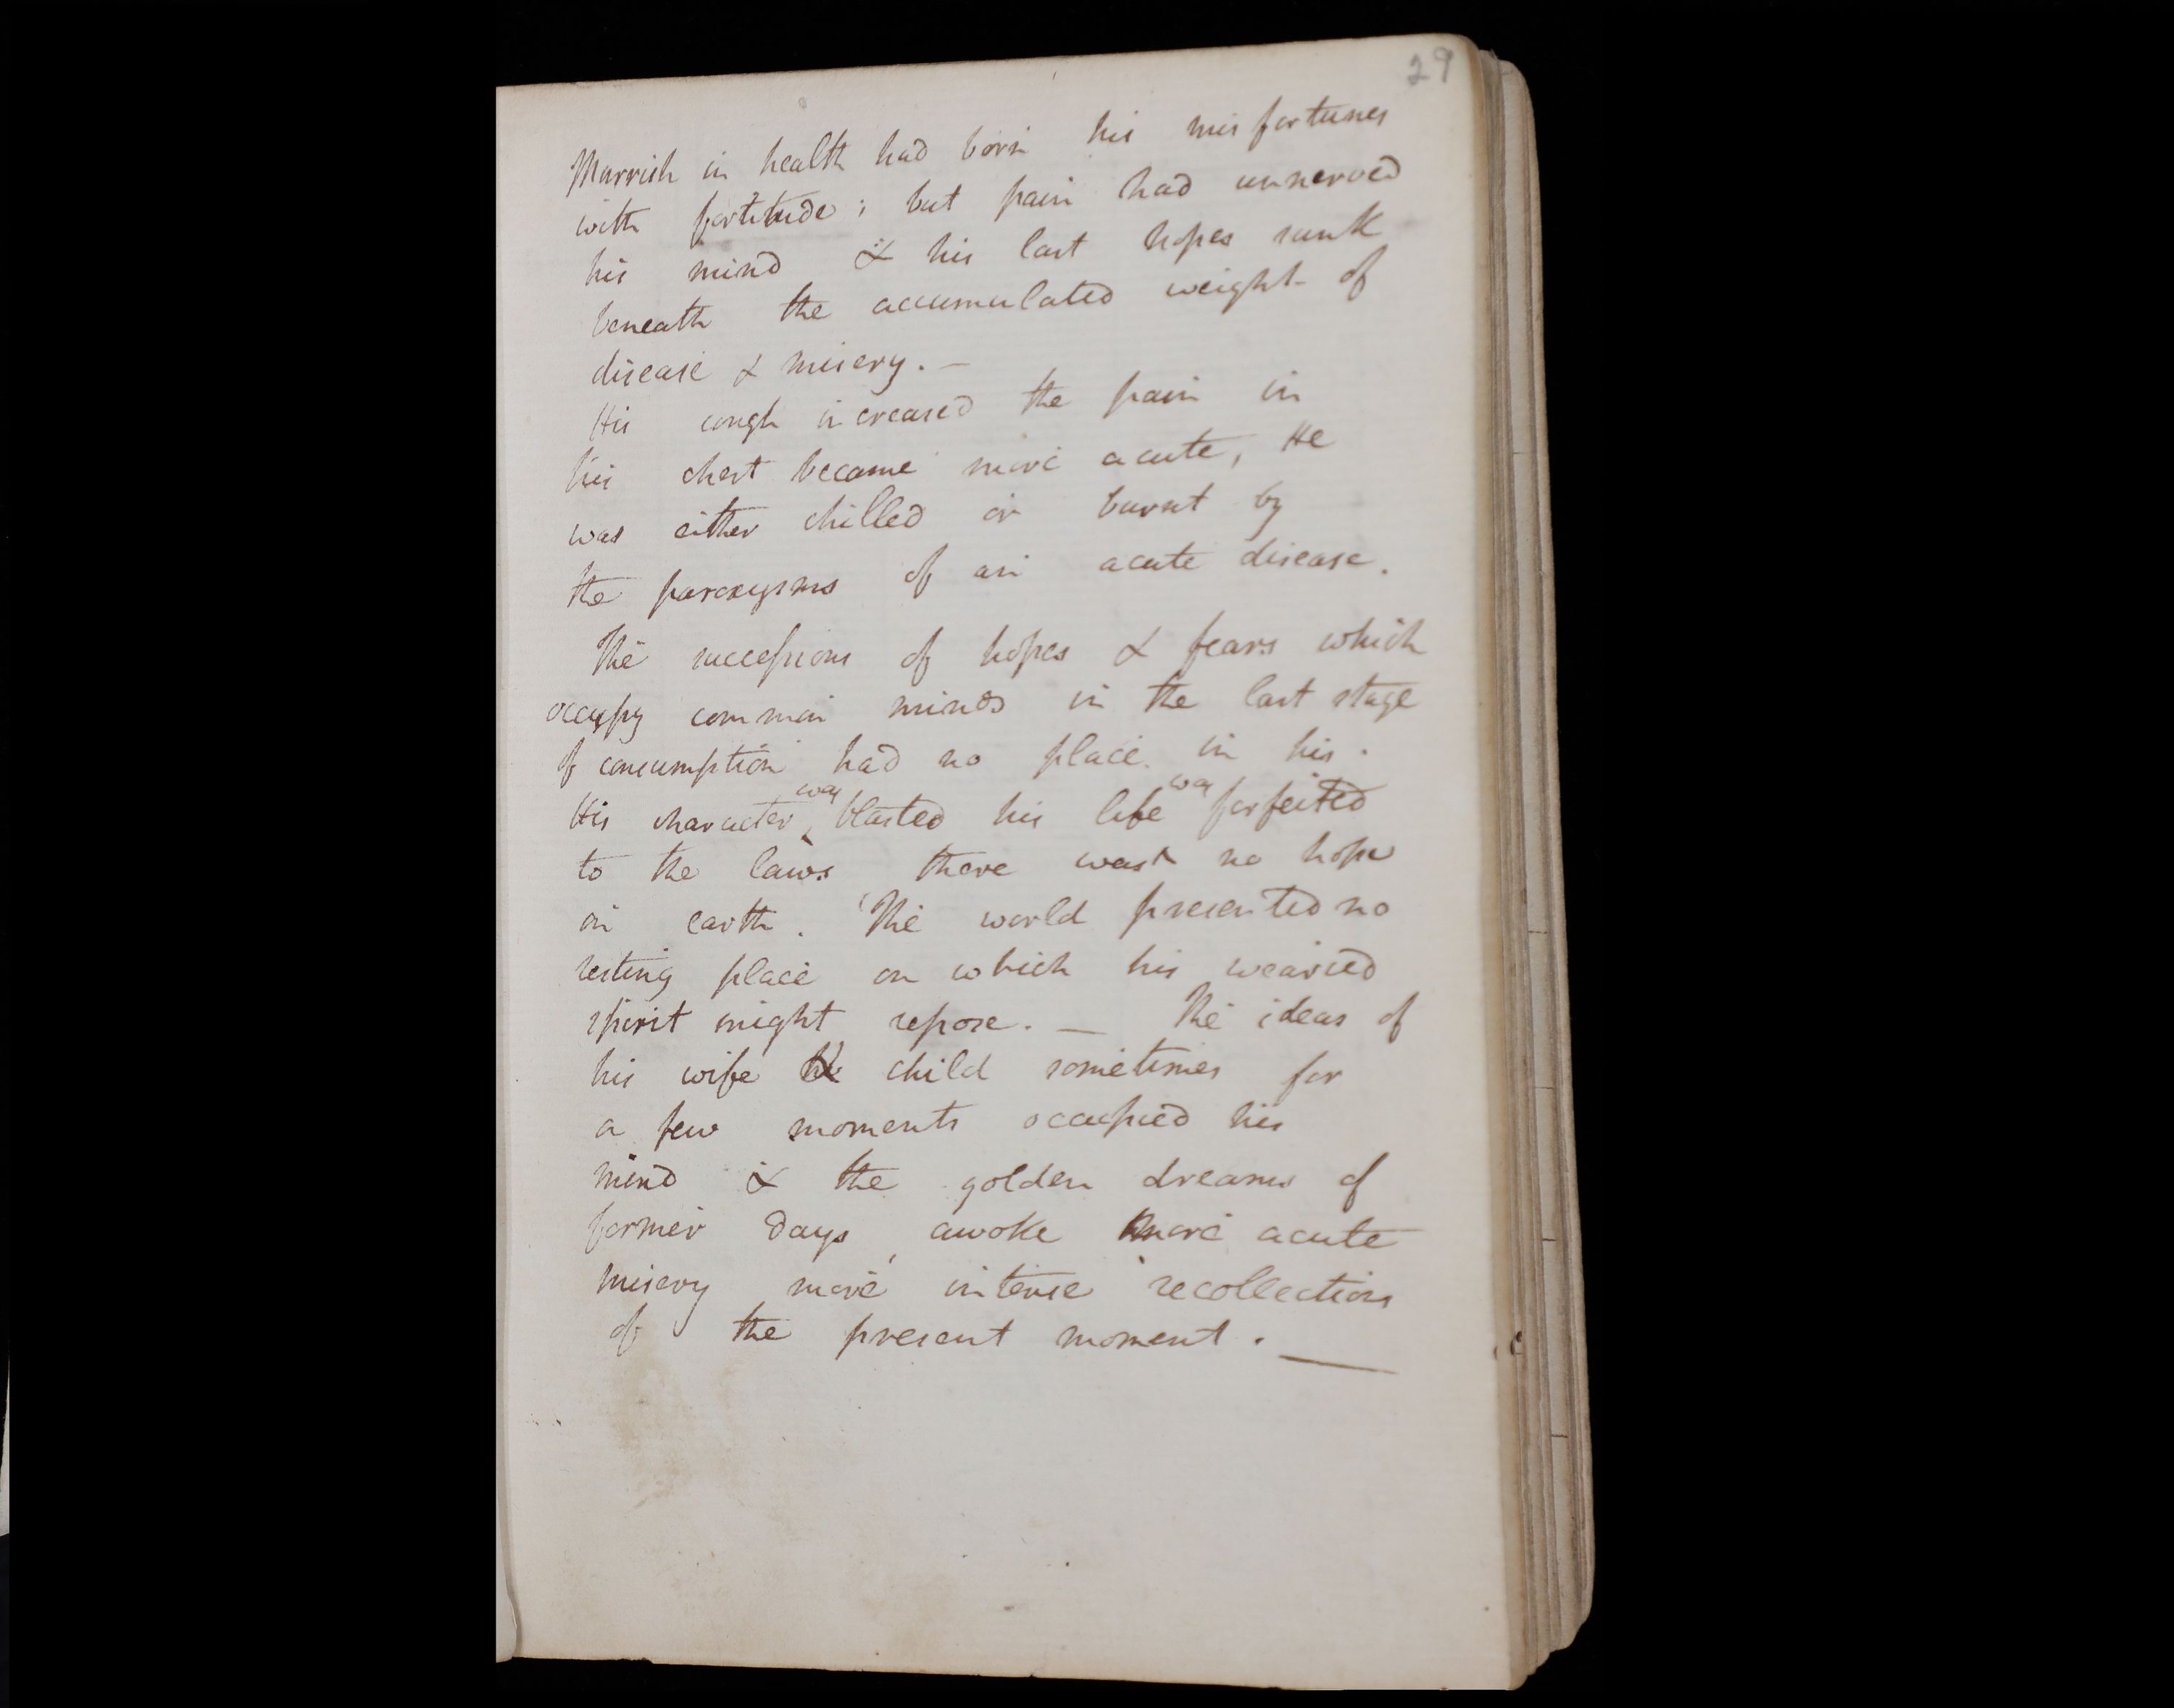 29
Marrish in health had born his misfortunes
with fortitude; but pain had unnerved
his mind & his last hopes sunk
beneath the accumulated weight of
disease & misery. —
His cough increased the pain in
his chest became more acute, He
was either chilled or burnt by
the paroxysms of an acute disease.
The successions of hopes & fears which
occupy common minds in the last stage
of consumption had no place in his.
was was
His character blasted his life forfeited
to the laws there was no hope
on earth. The world presented no
resting place on which his wearied
spirit might repose. — The ideas of
his wife & child sometimes for
a few moments occupied his
mind & the golden dreams of
former days, awoke more acute
misery more intense recollections
of the present moment. —